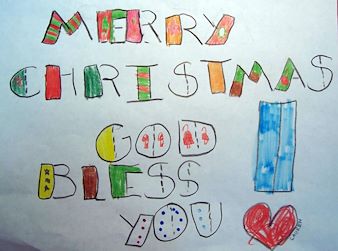 MERRY
CHRISTMAS
GOD
BLESS
YOU !